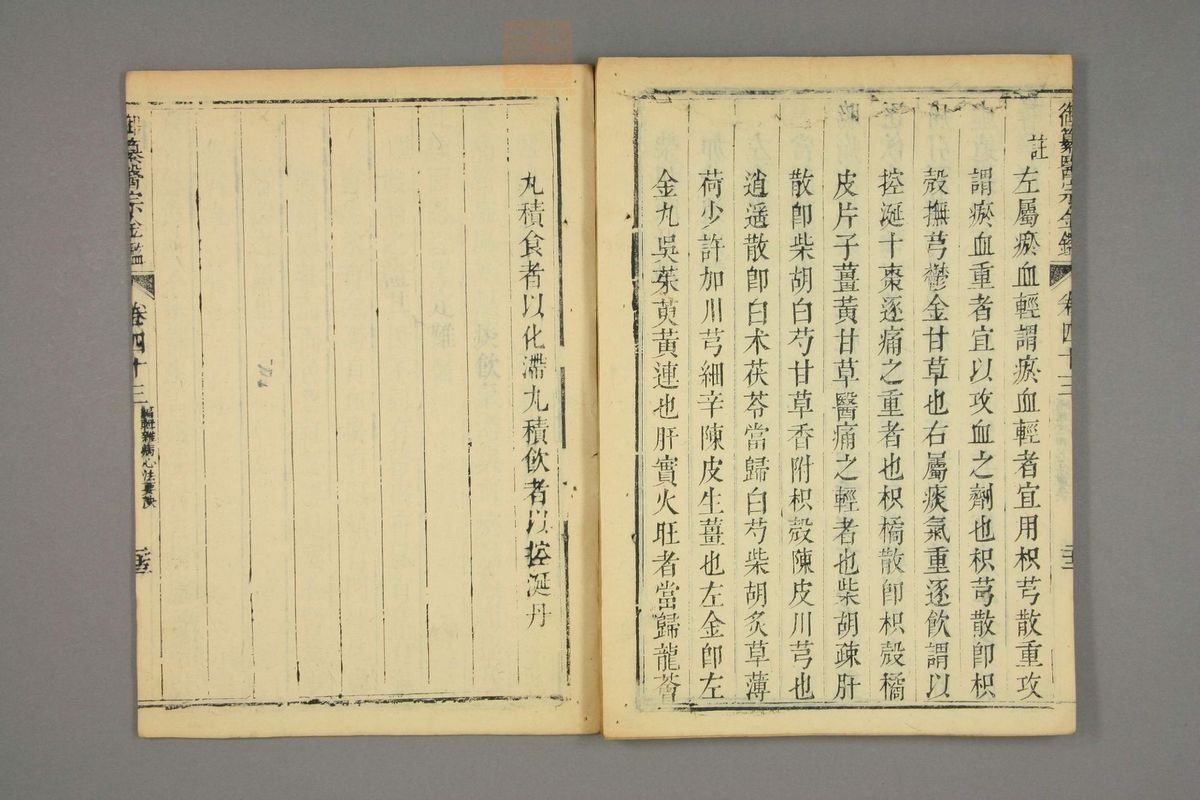 御纂醫宗金鑑 卷四十三
註
左屬瘀血輕謂瘀血輕者宜用枳芎散重攻
謂瘀血重者宜以攻血之劑也枳芎散卽枳
殼撫芎鬱金甘草也右屬痰氣重逐飲謂以
控涎十棗逐痛之重者也枳橘散卽枳殼橘
皮片子薑黃甘草醫痛之輕者也柴胡疎肝
散卽柴胡白芍甘草香附枳殼陳皮川芎也
逍遥散卽白朮茯苓當歸白芍柴胡炙草薄
荷少許加川芎細辛陳皮生薑也左金卽左
金九吳茱萸黃連也肝實火旺者當歸龍薈
丸積食者以化滯九積飲者以控涎丹
御纂醫宗金鑑 卷四十三 編輯雜病心法要訣